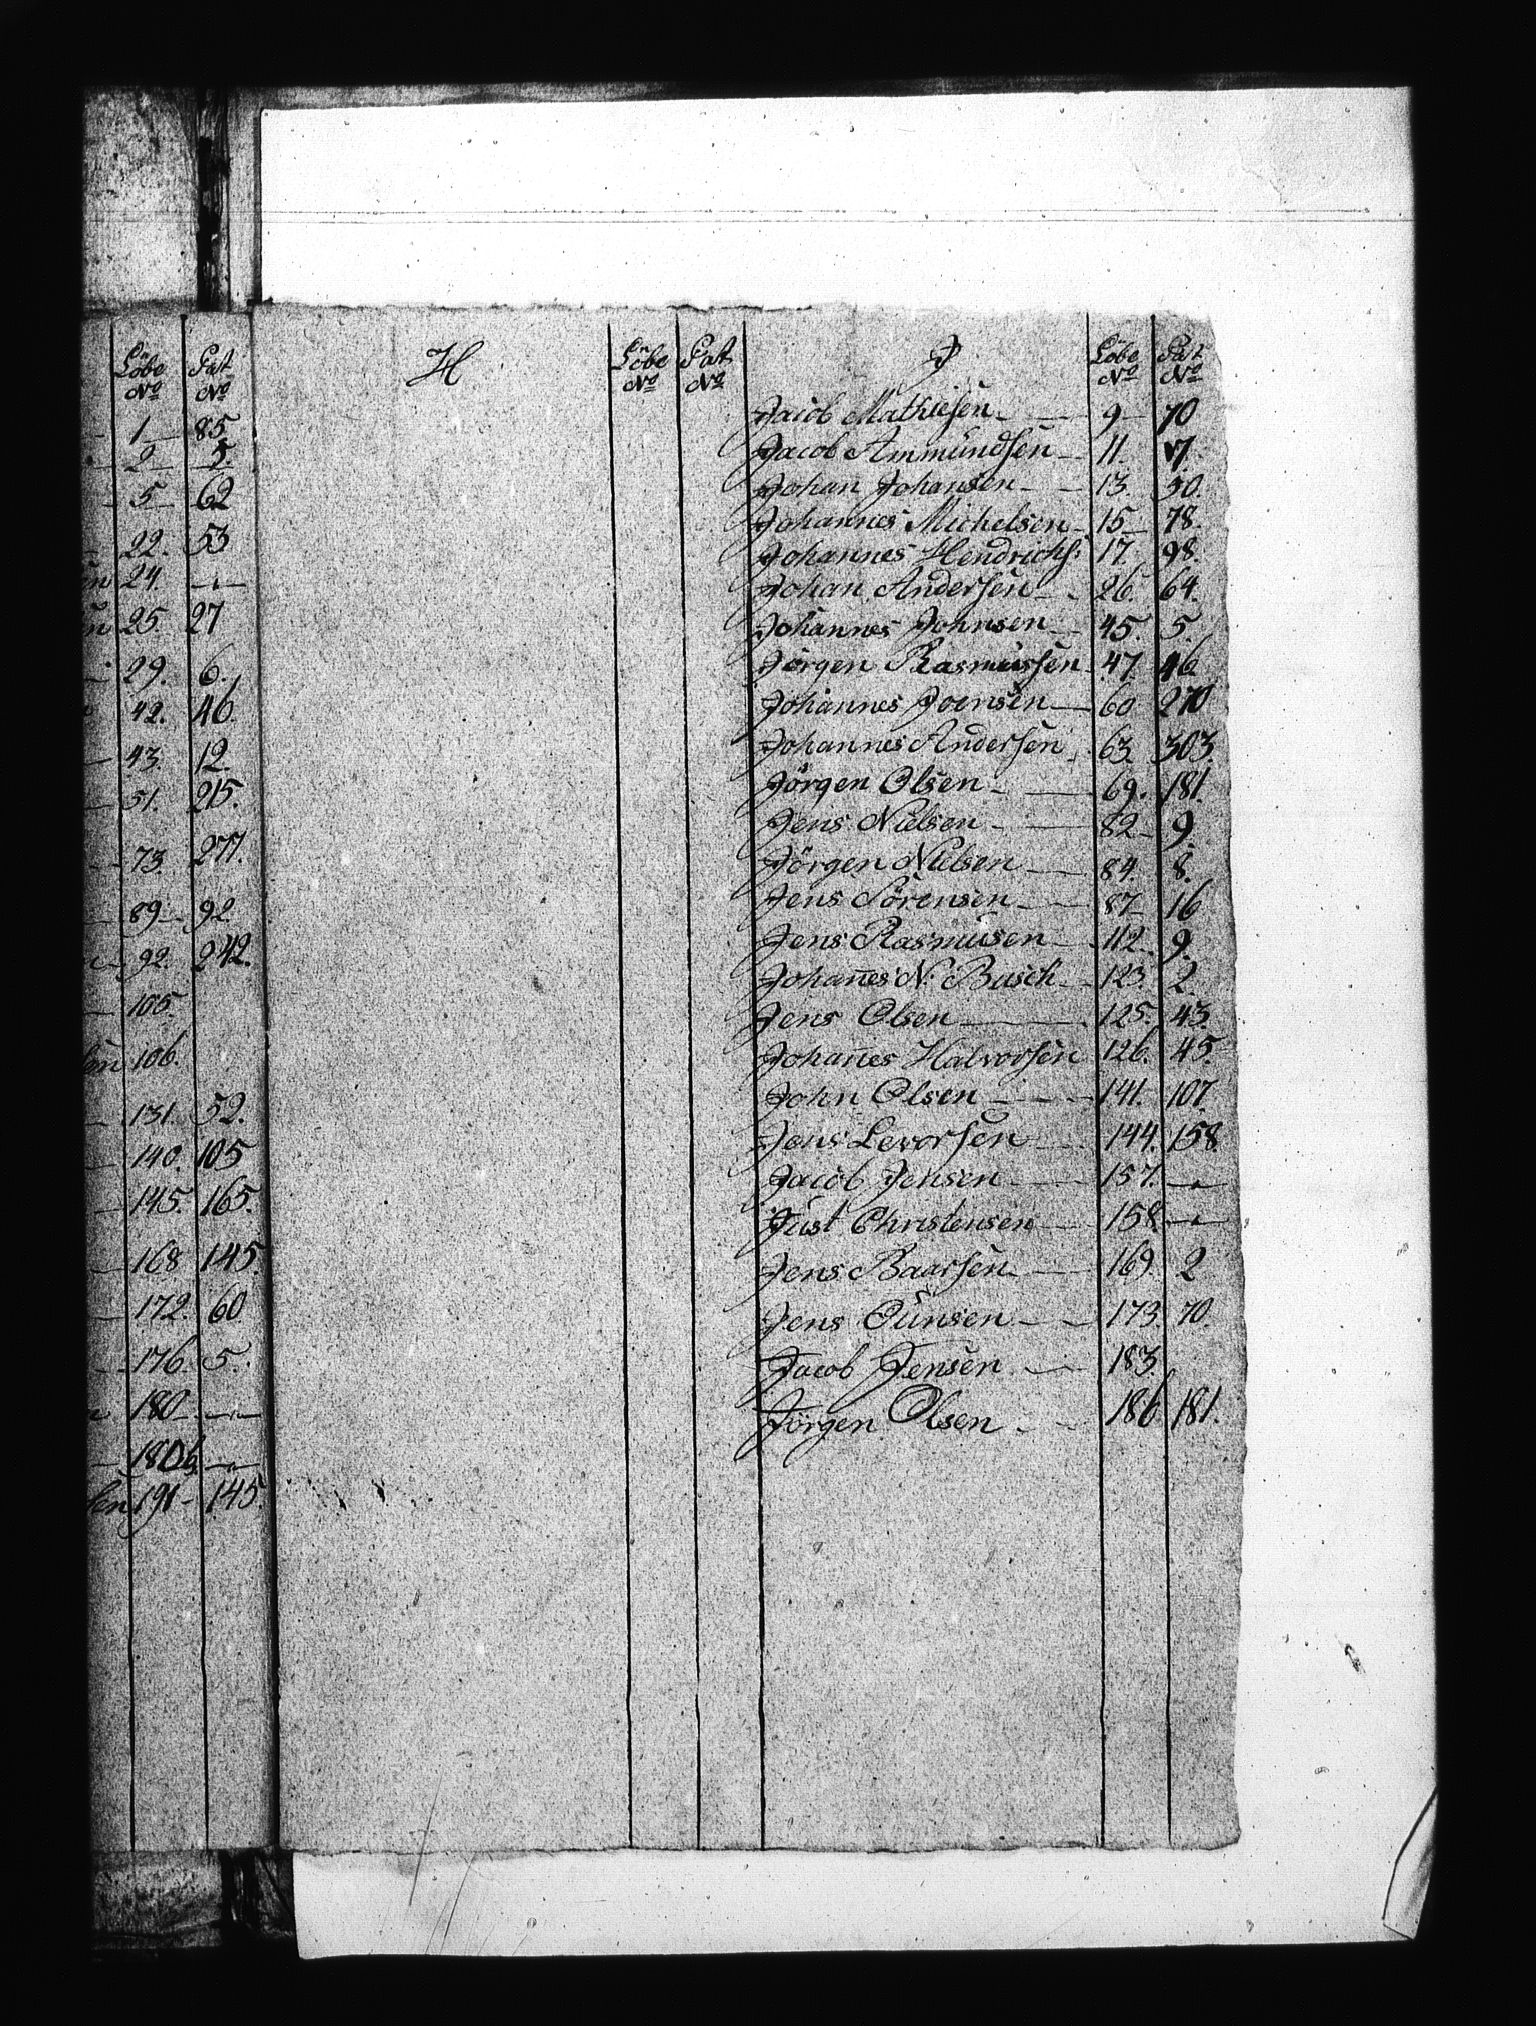 Löbe Pat
No No
1 85
2 5.
5 62
22. 53
24.
25. 27
29. 6.
42. 46.
43. 12.
51. 215.
73. 277.
89 92
92. 242.
105.
106.
131. 52.
140. 105
145. 165.
168 145
172. 60
176. 5.
180
180b.
191 145.
H Löbe Pat
No No
J Löbe Pat
No No
Jacob Mathiesen 9 70
Jacob Ammundsen 11. 7.
Johan Johansen 13. 50.
Johannes Michelsen 15 78.
Johannes Hendrichs: 17. 98.
Johan Andersen 26. 64.
Johannes Johnsen 45. 5.
Jörgen Rasmussen 47. 46
Johannes Joensen 60 270
Johannes Andersen 63. 303.
Jörgen Olsen 69. 181.
Jens Nielsen 82 9.
Jörgen Nielsen 84. 8.
Jens Sörensen 87 16
Jens Rasmusen 112. 9.
Johañes N. Busch 123. 2.
Jens Olsen 125. 43.
Johañes Halvorsen 126. 45.
John Olsen 141. 107.
Jens Levorsen 144. 158.
Jacob Jensen 157.
Just Christensen 158
Jens Baarsen 169. 2
Jens Ounsen 173. 70.
Jacob Jensen 183.
Jörgen Olsen 186 181.